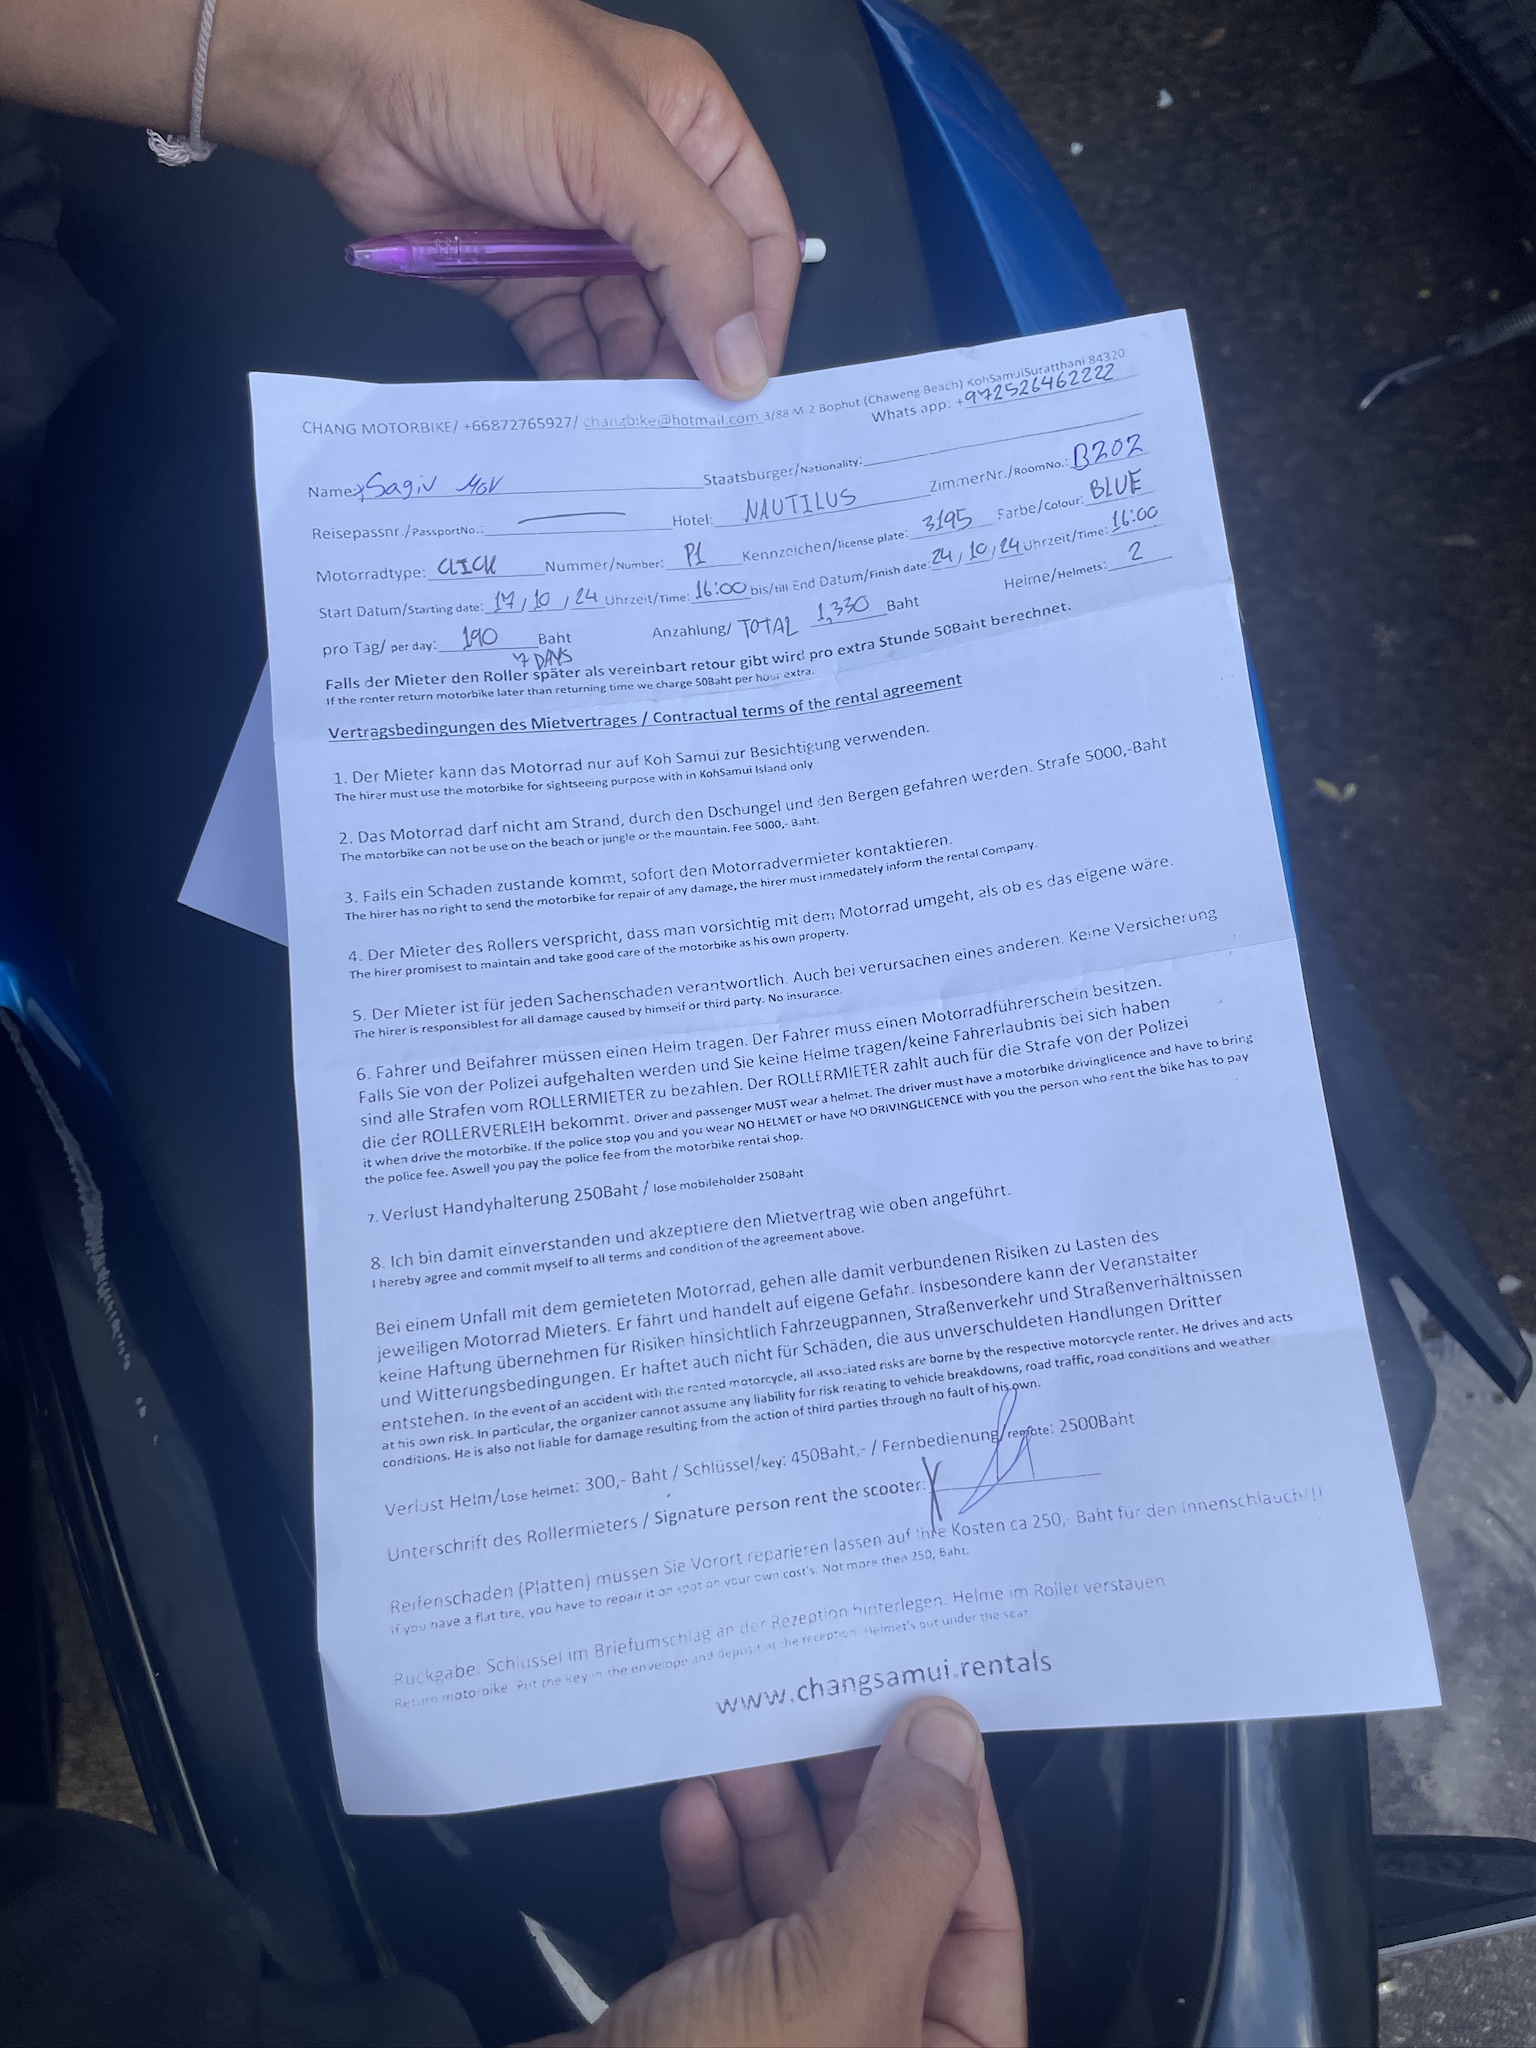 CHANG MOTORBIKE/ +66872765927/ changbike@hotmail.com 3/88 M.2 Bophut (Chaweng Beach) KohSamuiSuratthani 84320
Whats app: +972526462222
Name: Sagiv Staatsbürger/Nationality:
Reisepassnr./PassportNo.: Hotel: NAUTILUS ZimmerNr./RoomNo.: B202
Motorradtype: CLICK Nummer/Number: P1 Kennzeichen/license plate: 3195 Farbe/Colour: BLUE
Start Datum/Starting date: 17/10/24 Uhrzeit/Time: 16:00 bis/till End Datum/Finish date: 24/10/24 Uhrzeit/Time: 16:00
pro Tag/ per day: 190 Baht Anzahlung/ TOTAL 1,330 Baht Helme/Helmets: 2
7 DAYS
Falls der Mieter den Roller später als vereinbart retour gibt wird pro extra Stunde 50Baht berechnet.
If the renter return motorbike later than returning time we charge 50Baht per hour extra.
Vertragsbedingungen des Mietvertrages / Contractual terms of the rental agreement
1. Der Mieter kann das Motorrad nur auf Koh Samui zur Besichtigung verwenden.
The hirer must use the motorbike for sightseeing purpose with in KohSamui Island only
2. Das Motorrad darf nicht am Strand, durch den Dschungel und den Bergen gefahren werden. Strafe 5000,-Baht
The motorbike can not be use on the beach or jungle or the mountain. Fee 5000,- Baht.
3. Falls ein Schaden zustande kommt, sofort den Motorradvermieter kontaktieren.
The hirer has no right to send the motorbike for repair of any damage, the hirer must immedately inform the rental Company.
4. Der Mieter des Rollers verspricht, dass man vorsichtig mit dem Motorrad umgeht, als ob es das eigene wäre.
The hirer promisest to maintain and take good care of the motorbike as his own property.
5. Der Mieter ist für jeden Sachenschaden verantwortlich. Auch bei verursachen eines anderen. Keine Versicherung
The hirer is responsiblest for all damage caused by himself or third party. No insurance.
6. Fahrer und Beifahrer müssen einen Helm tragen. Der Fahrer muss einen Motorradführerschein besitzen.
Falls Sie von der Polizei aufgehalten werden und Sie keine Helme tragen/keine Fahrerlaubnis bei sich haben
sind alle Strafen vom ROLLERMIETER zu bezahlen. Der ROLLERMIETER zahlt auch für die Strafe von der Polizei
die der ROLLERVERLEIH bekommt. Driver and passenger MUST wear a helmet. The driver must have a motorbike drivinglicence and have to bring
it when drive the motorbike. If the police stop you and you wear NO HELMET or have NO DRIVINGLICENCE with you the person who rent the bike has to pay
the police fee. Aswell you pay the police fee from the motorbike rental shop.
7. Verlust Handyhalterung 250Baht / lose mobileholder 250Baht
8. Ich bin damit einverstanden und akzeptiere den Mietvertrag wie oben angeführt.
I hereby agree and commit myself to all terms and condition of the agreement above.
Bei einem Unfall mit dem gemieteten Motorrad, gehen alle damit verbundenen Risiken zu Lasten des
jeweiligen Motorrad Mieters. Er fährt und handelt auf eigene Gefahr. Insbesondere kann der Veranstalter
keine Haftung übernehmen für Risiken hinsichtlich Fahrzeugpannen, Straßenverkehr und Straßenverhältnissen
und Witterungsbedingungen. Er haftet auch nicht für Schäden, die aus unverschuldeten Handlungen Dritter
entstehen. In the event of an accident with the rented motorcycle, all associated risks are borne by the respective motorcycle renter. He drives and acts
at his own risk. In particular, the organizer cannot assume any liability for risk relating to vehicle breakdowns, road traffic, road conditions and weather
conditions. He is also not liable for damage resulting from the action of third parties through no fault of his own.
Verlust Helm/Lose helmet: 300,- Baht / Schlüssel/key: 450Baht,- / Fernbedienung/remote: 2500Baht
Unterschrift des Rollermieters / Signature person rent the scooter: X
Reifenschaden (Platten) müssen Sie Vorort reparieren lassen auf Ihre Kosten ca 250,- Baht für den Innenschlauch!!!
If you have a flat tire, you have to repair it on spot on your own cost's. Not more then 250, Baht.
Rückgabe: Schlüssel im Briefumschlag an der Rezeption hinterlegen. Helme im Roller verstauen
Return motorbike. Put the key in the envelope and deposit at the reception. Helmet's out under the seat
www.changsamui.rentals